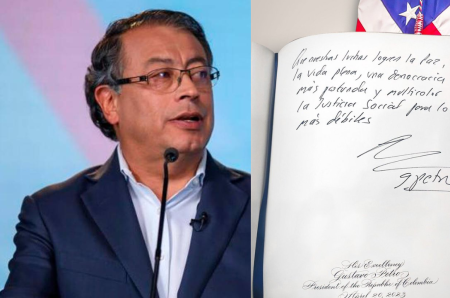 Que nuestras luchas logren la Paz,
la vida plena, una democracia
más profunda y multicolor
la Justicia Social para lo
más débiles
gpetr
His Excellency
Gustavo Petro
President of the Republic of Colombia
March 20, 2023